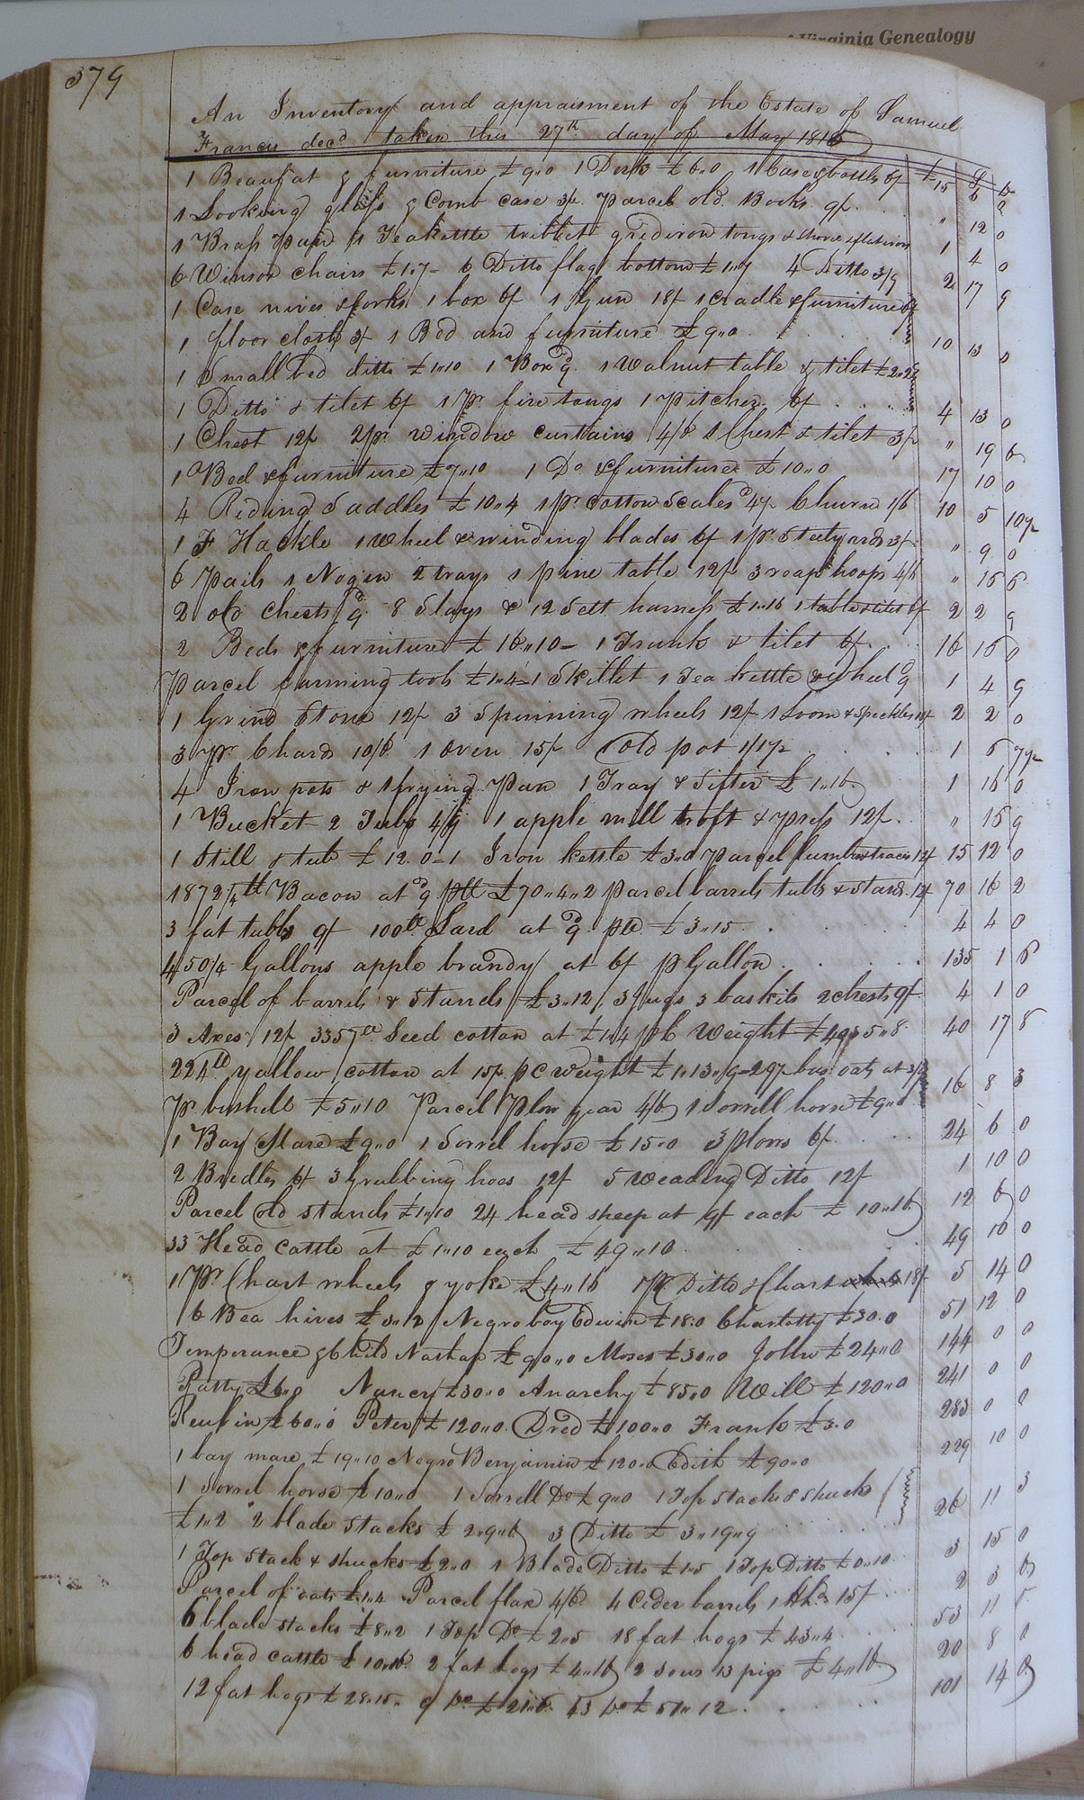 Virginia Genealogy
379
An Inventory and appraisment of the Estate of Samuel
Francis decd taken this 27th day of May 1816
1 Beaufat & furniture £9"0 1 Desk £6"0 1 Case & bottles 6/ £15 6 0
1 Looking glass & Comb case 3/. Parcel old Books 9/. " 12 0
1 Brass pan 1 Teakettle tribbet gridiron tongs & shovel & flatirons 1 4 0
6 Winsor chairs £1"7– 6 Ditto flag bottom £1"7 4 Ditto 3/9 2 17 9
1 Case nives & forks 1 box 6/ 1 Gun 18/ 1 cradle & furniture
1 floor cloth 3/ 1 Bed and furniture £9"0 10 13 0
1 Small bed ditto £1"10 1 Box 9d 1 walnut table & tilet
1 Ditto & tilet 6/ 1 pr. fire tongs 1 Pitcher 6/ 4 13 0
1 Chest 12/ 2 pr. window curtains 4/6 1 Chest & tilet 3/ " 19 6
1 Bed & furniture £7"10 1 Do & furniture £10"0 17 10 0
4 Riding Saddles £10"4 1 pr. cotton Scales Churn 1/6 10 5 10½
1 F Hackle 1 wheel & winding blades 6/ 1 pr. Steelyards 3/ " 9 0
6 Pails 1 Nogin 2 trays 1 pine table 12/ 3 reap hoops 4/6 " 16 6
2 old Chests 9d 8 Slays & 12 Sett harness £1"16 1 table & tilet 6/ 2 2 9
2 Beds & furniture £16"10– 1 Trunk & tilet 6/ 16 16 0
Parcel farming tools £1"4– 1 Skillet 1 Tea kettle & wheel 9d 1 4 9
1 Grind Stone 12/ 3 Spinning wheels 12/ 1 Loom & Speckles 18/ 2 2 0
3 pr. Chards 10/6 1 oven 15/ Old pot 1/1½ 1 6 7½
4 Iron pots & 1 frying Pan 1 Tray & Sifter £1"16 1 16 0
1 Bucket 2 Tubs 4/9 1 apple mill troft & press 12/. " 16 9
1 Still & tub £12"0– 1 Iron kettle £3"0 Parcel lumber & traces 12/ 15 12 0
1872¼ lb Bacon at 9d plb £70"4"2 Parcel barrels tubbs & stands 12/ 70 16 2
3 fat tubbs 9/ 100lb Lard at 9d plb £3"15 4 4 0
450¼ Gallons apple brandy at 6/ p Gallon 135 1 6
Parcel of barrels & Stands £3"12/ 3 Jugs 3 baskits 2 chests 9/ 4 1 0
3 Axes 12/ 3357lb Seed cotton at £1"4 p C Weight £40"5"8 40 17 8
224lb yallow cotton at 15/ p C weight £1"13"9– 29½ bus. oats at 3/9
pr bushell £5"10 Parcel Plow gear 4/6 1 Sorrell horse £9"0 16 8 3
1 Bay Mare £9"0 1 Sorrel horse £15"0 3 plows 6/. 24 6 0
2 Bredles 6/ 3 Grubbing hoes 12/ 5 weading Ditto 12/ 1 10 0
Parcel Old stands £1"10 24 head sheep at 9/ each £10"16 12 6 0
33 Head cattle at £1"10 each £49"10 49 10 0
1 pr. Chart wheels & yoke £4"16 1 pr Ditto & Chart 18/ 5 14 0
6 Bea hives £3"12 Negro boy Edwin £18"0 Charlotty £30"0 51 12 0
Temperance & Child Nashap £90"0 Moses £30"0 John £24"0 144 0 0
Patty £6"0 Nancy £30"0 Anarchy £85"0 Will £120"0 241 0 0
Reubin £60"0 Peter £120"0 Dred £100"0 Frank £3"0 283 0 0
1 bay mare £19"10 Negro Benjamin £120"0 Edith £90"0 229 10 0
1 Sorrel horse £10"0 1 Sorrell Do £9"0 1 Top Stacks & shucks
£1"2 2 blade stacks £2"9"6 3 Ditto £3"19"9 26 11 3
1 Top Stack & shucks £2"0 1 Blade Ditto £1"5 1 Top Ditto £0"10 3 15 0
Parcel of oats £1"4 Parcel flax 4/6 4 Ceder barrels 1 15/ 2 3 6
6 blade stacks £8"2 1 Top Do £2"5 18 fat hogs £43"4 53 11
6 head cattle 2 fat hogs £4"16 2 Sows 13 pigs £4"16 20 8 0
12 fat hogs £28"15" 9 Do £21"6 13 Do £51"12 101 14 6